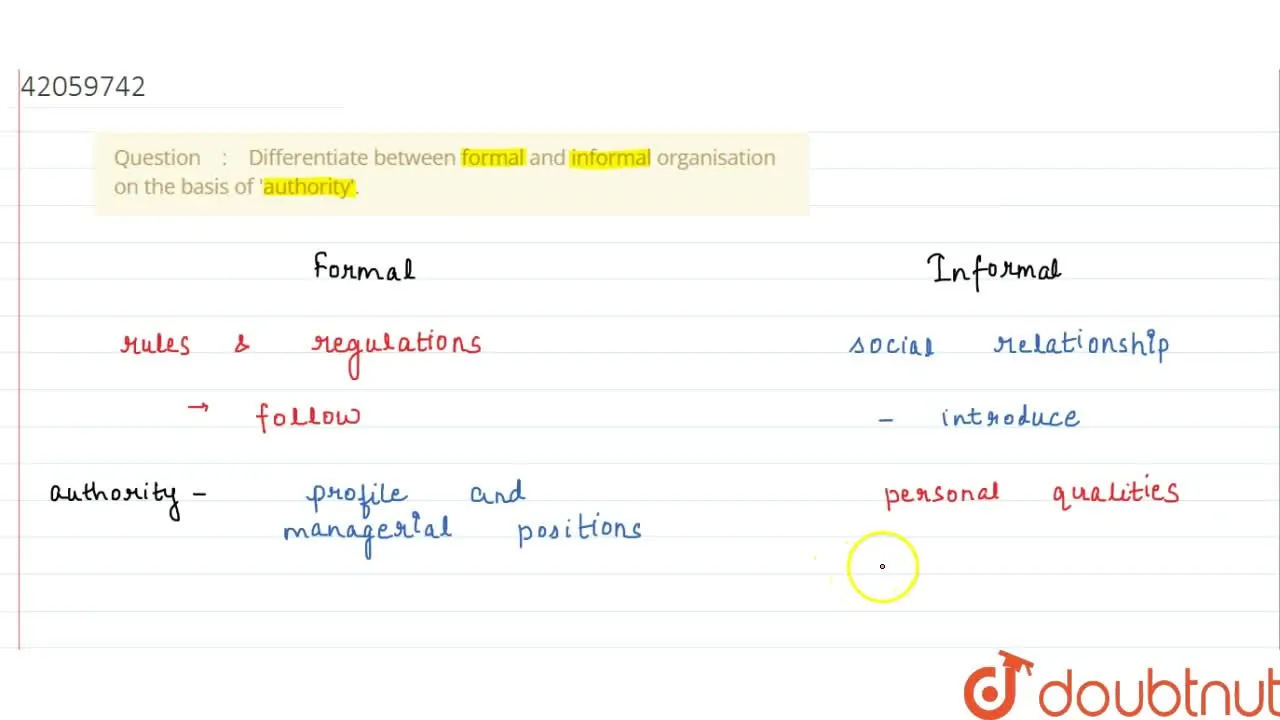 42059742
Question : Differentiate between formal and informal organisation
on the basis of 'authority'.
Formal Informal
rules & regulations social relationship
→ follow - introduce
authority - profile and personal qualities
managerial positions
doubtnut